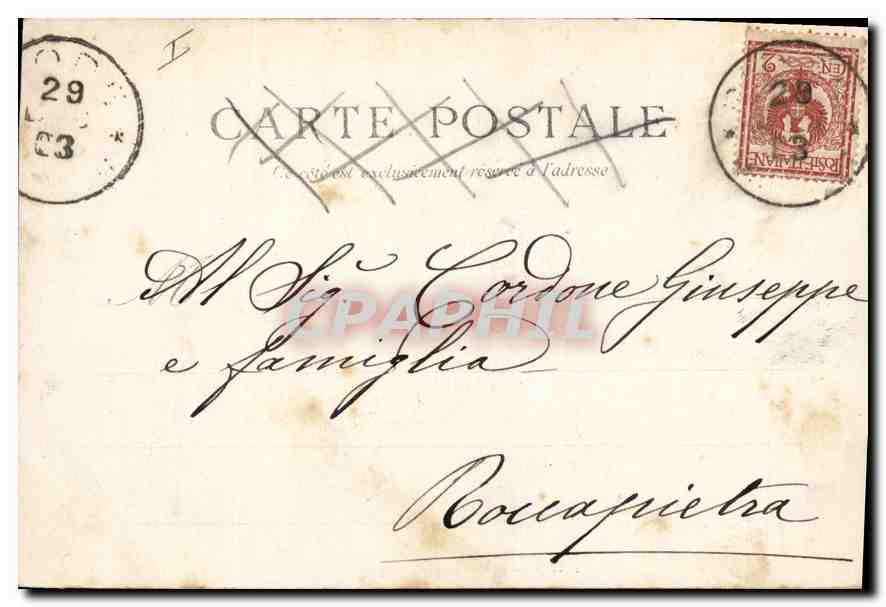 29
03
CARTE POSTALE
Ce côté est exclusivement reservé à l'adresse
2
POSTE ITALIANE
29
3
Al Sig.r Cordone Giuseppe
e famiglia
Roccapietra
CPAPHIL